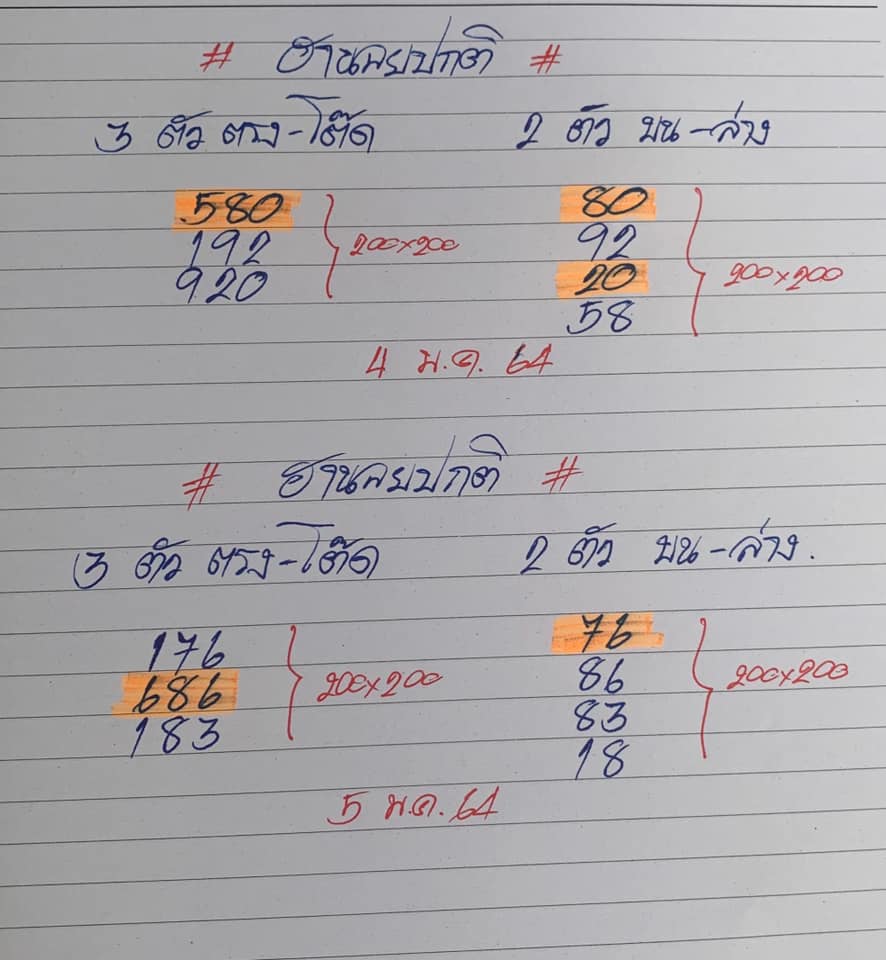 # ฮานอยปกติ #
3 ตัว ตรง-โต๊ด 2 ตัว บน-ล่าง
580 80
192 200×200 92
920 20 200×200
58
4 ม.ค. 64
# ฮานอยปกติ #
3 ตัว ตรง-โต๊ด 2 ตัว บน-ล่าง.
176 76
686 200×200 86 200×200
183 83
18
5 ม.ค. 64